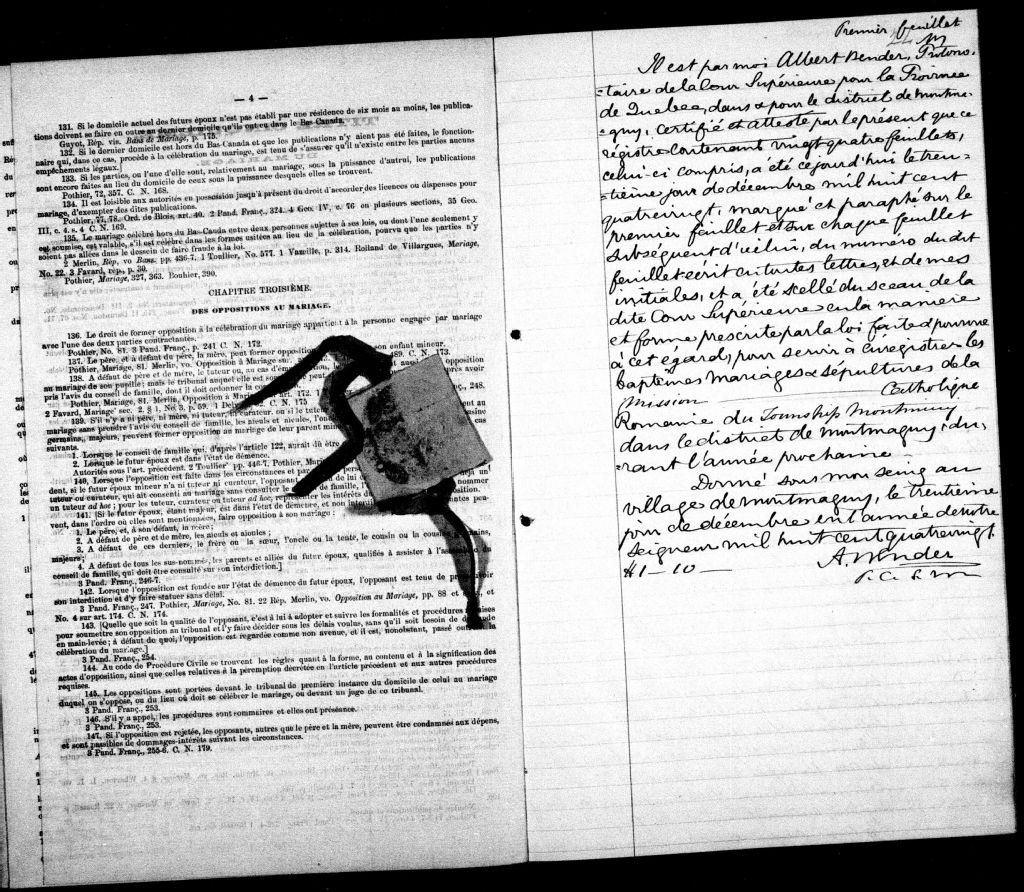 — 4 —
131. Si le domicile actuel des futurs époux n'est pas établi par une résidence de six mois au moins, les publica-
tions doivent se faire en outre au dernier domicile qu'ils ont eu dans le Bas Canada.
Guyot, Rép. vis. Bans de Mariage, p. 175.
132. Si le dernier domicile est hors du Bas-Canada et que les publications n'y aient pas été faites, le fonction-
naire qui, dans ce cas, procède à la célébration du mariage, est tenu de s'assurer qu'il n'existe entre les parties aucuns
empêchements légaux.]
133. Si les parties, ou l'une d'elle, sont, relativement au mariage, sous la puissance d'autrui, les publications
sont encore faites au lieu du domicile de ceux sous la puissance desquels elles se trouvent.
Pothier, 72, 357. C. N. 168.
134. Il est loisible aux autorités en possession jusqu'à présent du droit d'accorder des licences ou dispenses pour
mariage, d'exempter des dites publications.
Pothier, 77, 78. Ord. de Blois, art. 40. 2 Pand. Franç., 324. 4 Geo. IV, c. 76 en plusieurs sections, 35 Geo.
III, c. 4. s. 4 C. N. 169.
135. Le mariage célébré hors du Bas-Canada entre deux personnes sujettes à ses lois, ou dont l'une seulement y
est soumise, est valable, s'il est célébré dans les formes usitées au lieu de la célébration, pourvu que les parties n'y
soient pas allées dans le dessein de faire fraude à la loi.
2 Merlin, Rép, vo Bans, pp. 436-7. 1 Toullier, No. 577. 1 Vazeille, p. 314. Rolland de Villargues, Mariage,
No. 22. 3 Favard, rép., p. 30.
Pothier, Mariage, 327, 363. Bouhier, 390.
CHAPITRE TROISIÈME.
DES OPPOSITIONS AU MARIAGE.
136. Le droit de former opposition à la célébration du mariage appartient à la personne engagée par mariage
avec l'une des deux parties contractantes.
Pothier, No. 81. 3 Pand. Franç., p. 241 C. N. 172.
137. Le père, et à défaut du père, la mère, peut former opposition son enfant mineur.
Pothier, Mariage, 81. Merlin, vo. Opposition à Mariage sur 489. C. N. 173.
138. A défaut de père et de mère, le tuteur ou, au cas d'émancipation opposition
au mariage de son pupille; mais le tribunal auquel elle est avoir
pris l'avis du conseil de famille, dont il doit ordonner la
Pothier, Mariage, 81. Merlin, Opposition à Mariage art. 172. 248.
2 Favard, Mariage sec. 2. § 1. No 3, p. 59. 1 C. N. 175
139. S'il n'y a ni père, ni mère, ni tuteur, ni curateur, ou si le tuteur au
mariage sans prendre l'avis du conseil de famille, les aïeuls et aïeules, l'oncle
germains, majeurs, peuvent former opposition au mariage de leur parent mineur
suivants.
1. Lorsque le conseil de famille qui, d'après l'article 122, aurait dû être
2. Lorsque le futur époux est dans l'état de démence.
Autorités sous l'art. précédent. 2 Toullier pp. 446-7. Pothier,
140. Lorsque l'opposition est faite dans les circonstances et par
dent, si le futur époux mineur n'a ni tuteur ni curateur, l'opposant nommer
tuteur ou curateur, qui ait consenti au mariage sans consulter le
un tuteur ad hoc; pour les tuteur, curateur ou tuteur ad hoc, représenter les intérêts opposition.
141. [Si le futur époux, étant majeur, est dans l'état de démence, et non interdit peu-
vent, dans l'ordre où elles sont mentionnées, faire opposition à son mariage:
1. Le père, et, à son défaut, la mère;
2. A défaut de père et de mère, les aïeuls et aïeules;
3. A défaut de ces derniers, le frère ou la sœur, l'oncle ou la tante, le cousin ou la cousine germains,
majeurs;
4. A défaut de tous les sus-nommés, les parents et alliés du futur époux, qualifiés à assister à l'assemblée du
conseil de famille, qui doit être consulté sur son interdiction.]
3 Pand. Franç., 246-7.
142. Lorsque l'opposition est fondée sur l'état de démence du futur époux, l'opposant est tenu de provoquer
son interdiction et d'y faire statuer sans délai.
3 Pand. Franç., 247. Pothier, Mariage, No. 81. 22 Rép. Merlin, vo. Opposition au Mariage, pp. 88 et
No. 4 sur art. 174. C. N. 174.
143. [Quelle que soit la qualité de l'opposant, c'est à lui à adopter et suivre les formalités et procédures requises
pour soumettre son opposition au tribunal et l'y faire décider sous les délais voulus, sans qu'il soit besoin de demande
en main-levée; à défaut de quoi, l'opposition est regardée comme non avenue, et il est, nonobstant, passé outre à la
célébration du mariage.]
3 Pand. Franç., 254.
144. Au code de Procédure Civile se trouvent les règles quant à la forme, au contenu et à la signification des
actes d'opposition, ainsi que celles relatives à la péremption décrétée en l'article précédent et aux autres procédures
requises.
145. Les oppositions sont portées devant le tribunal de première instance du domicile de celui au mariage
duquel on s'oppose, ou du lieu où doit se célébrer le mariage, ou devant un juge de ce tribunal.
3 Pand. Franç., 253.
146. S'il y a appel, les procédures sont sommaires et elles ont préséance.
3 Pand. Franç., 253.
147. Si l'opposition est rejetée, les opposants, autres que le père et la mère, peuvent être condamnés aux dépens,
et sont passibles de dommages-intérêts suivant les circonstances.
3 Pand. Franç., 255-6. C. N. 179.
Premier feuillet
Il est par moi Albert Bender, Protono-
-taire de la Cour Supérieure pour la Province
de Quebec, dans & pour le district de Montma-
-gny, certifié et attesté par le présent que ce
régistre contenant vingt quatre feuillets,
celui-ci compris, a été ce jourd'hui le tren-
-tième jour de décembre mil huit cent
quatrevingt, marqué et paraphé sur le
premier feuillet et sur chaque feuillet
subséquent d'icelui, du numero du dit
feuillet écrit en toutes lettres, et de mes
initiales, et a été scellé du sceau de la
dite Cour Supérieure en la manière
et forme prescrite par la loi faite & pourvue
à cet égard, pour servir à enregistrer les
baptêmes mariages & sépultures de la
Mission Catholique
Romaine du Township Montminy
dans le district de Montmagny, du-
-rant l'année prochaine.
Donné sous mon seing au
village de Montmagny, le trentième
jour de décembre en l'année de notre
Seigneur mil huit cent quatrevingt.
$1-10— A. Bender
P. C. S. M